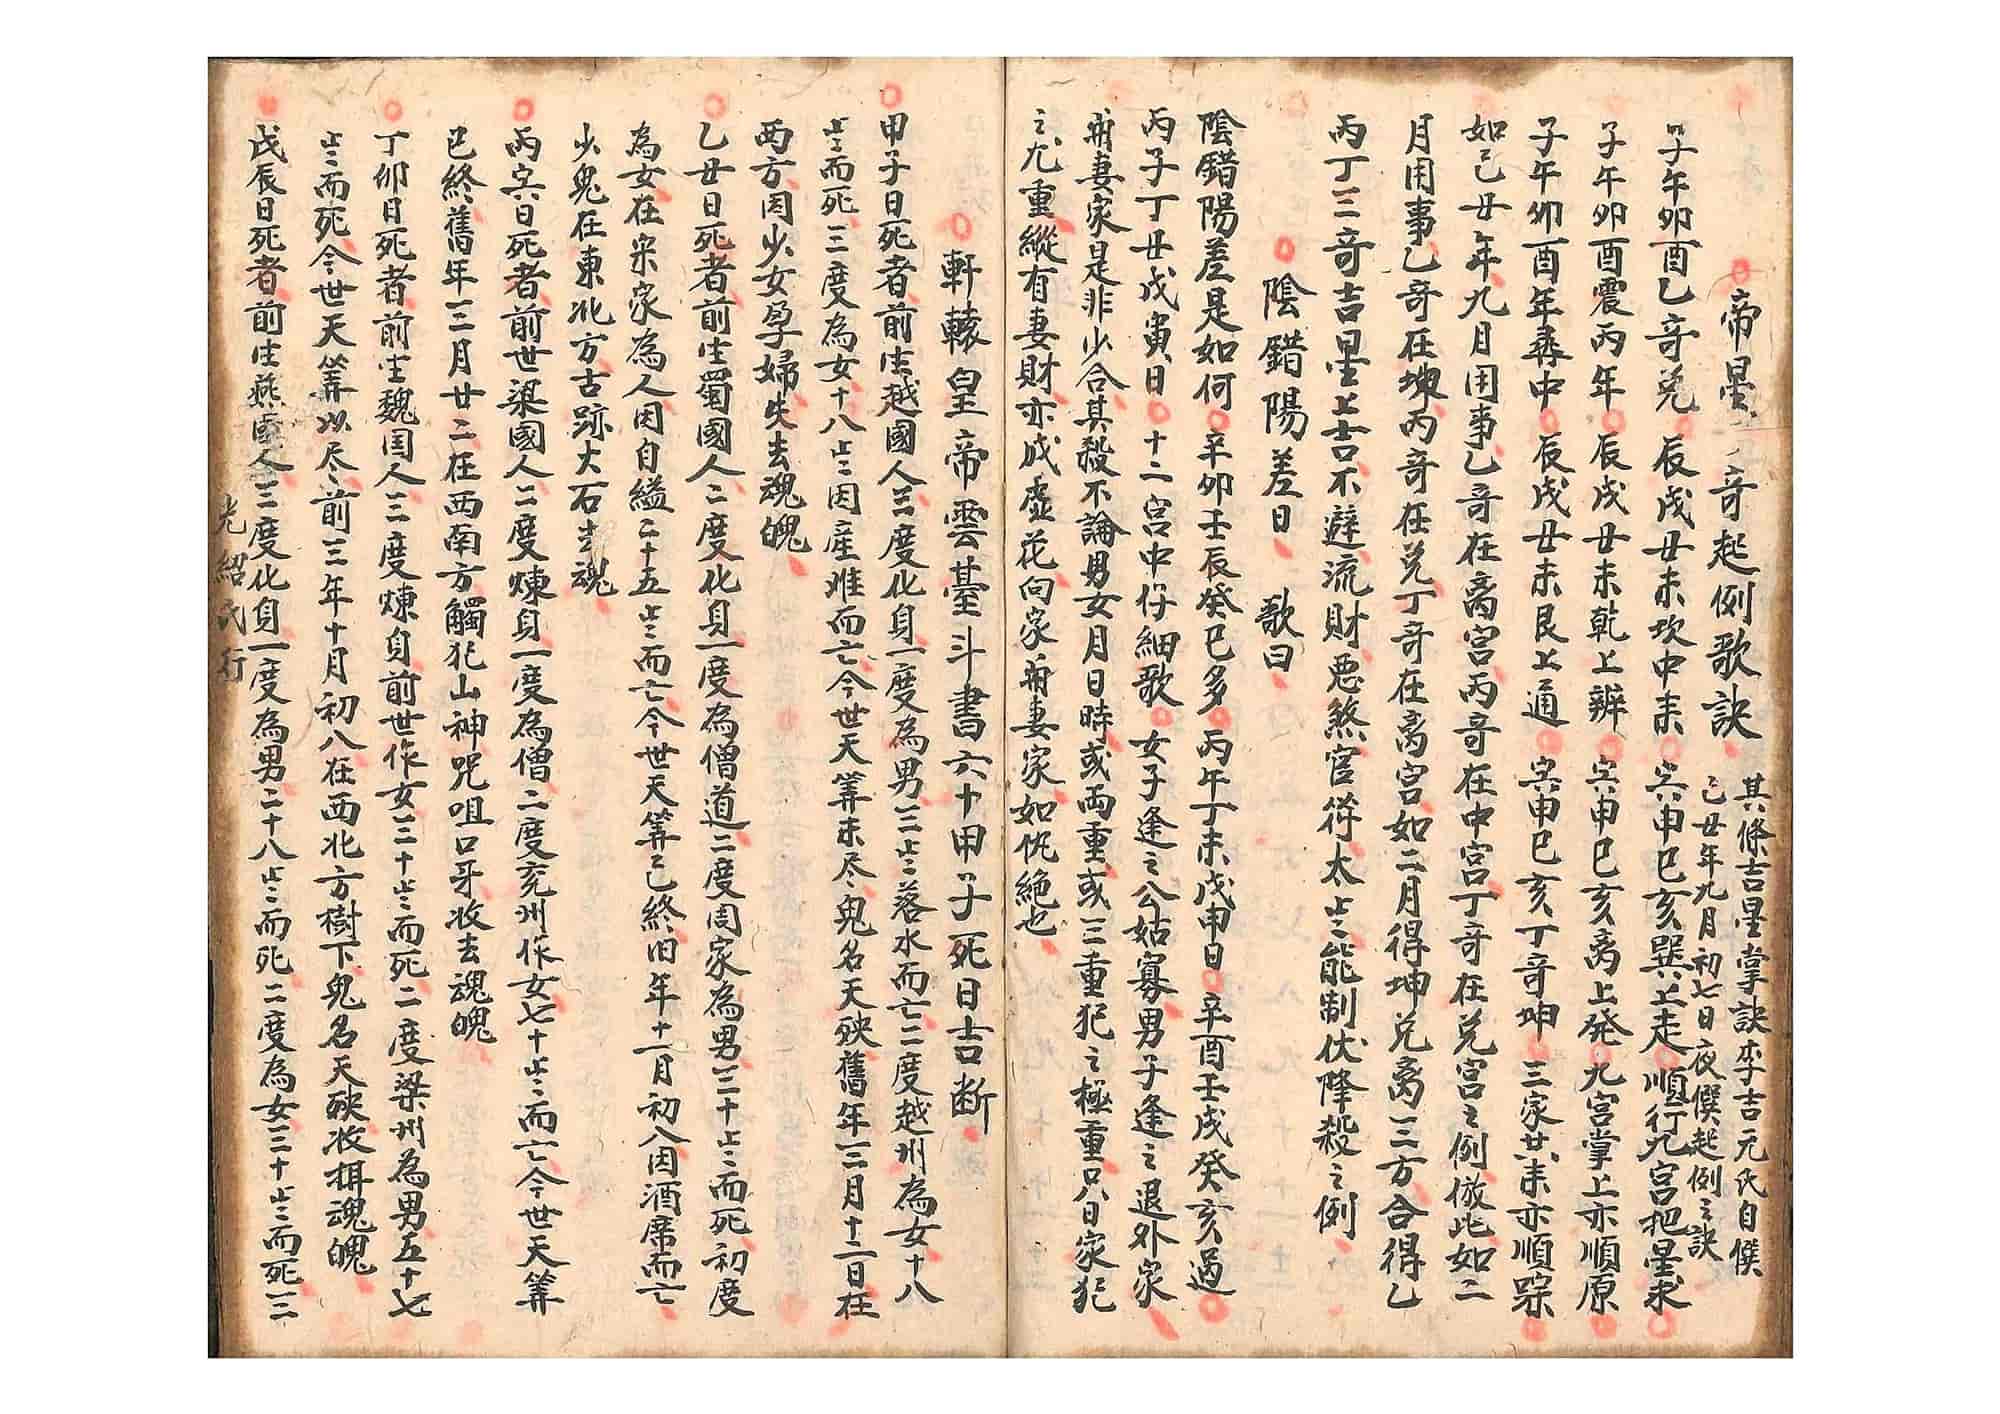 帝星三奇起例歌訣
其條吉星掌訣李吉元氏自僎
己丑年九月初七日夜僎起例之訣
子午卯酉乙奇兑 辰戌丑未坎中耒 寅申巳亥巽上走 順行九宫把星求
子午卯酉震丙年 辰戌丑未乾上辦 寅申巳亥离上発 九宫掌上亦順原
子午卯酉年尋中 辰戌丑未艮上通 寅申巳亥丁奇坤 三家共耒亦順踪
如己丑年九月用事乙奇在离宫丙奇在中宫丁奇在兑宫之例倣此如二
月用事乙奇在堍丙奇在兑丁奇在离宫如二月得坤兑离三方合得乙
丙丁三奇吉星上吉不避流財恶煞官符太歲能制伏降殺之例
陰錯陽差日 歌曰
陰錯陽差是如何 辛卯壬辰癸巳多 丙午丁未戊申日 辛酉壬戌癸亥過
丙子丁丑戊寅日 十二宫中仔細歌 女子逢之公姑寡男子逢之退外家
甪妻家是非少合其殺不論男女月日時或両重或三重犯之極重只日家犯
之九重縱有妻財亦成虚花向家甪妻家如仇絶也
軒轅皇帝雲臺斗書六十甲子死日吉断
甲子日死者前生越國人三度化身一度為男三歲落水而亡二度越州為女十八
歲而死三度為女十八歲因産难而亡今世天筭未尽鬼名天殃舊年三月十二日在
西方因少女孕婦失去魂魄
乙丑日死者前生蜀國人二度化身一度為僧道二度周家為男三十歲而死初度
為女在宋家為人因自縊二十五歲而亡今世天筭已終旧年十一月初八因酒席而亡
少鬼在東北方古跡大石去魂
丙寅日死者前世梁國人二度煉身一度為僧二度兖州作女七十歲而亡今世天筭
已終舊年三月廿二在西南方觸犯山神咒咀口牙收去魂魄
丁卯日死者前生魏国人三度煉身前世作女三十歲而死二度梁州為男五十七
歲而死今世天筭以尽前三年十月初八在西北方樹下鬼名天殃收掑魂魄
戊辰日死者前生燕國人三度化身一度為男二十八歲而死二度為女三十歲而死三
光紹氏行